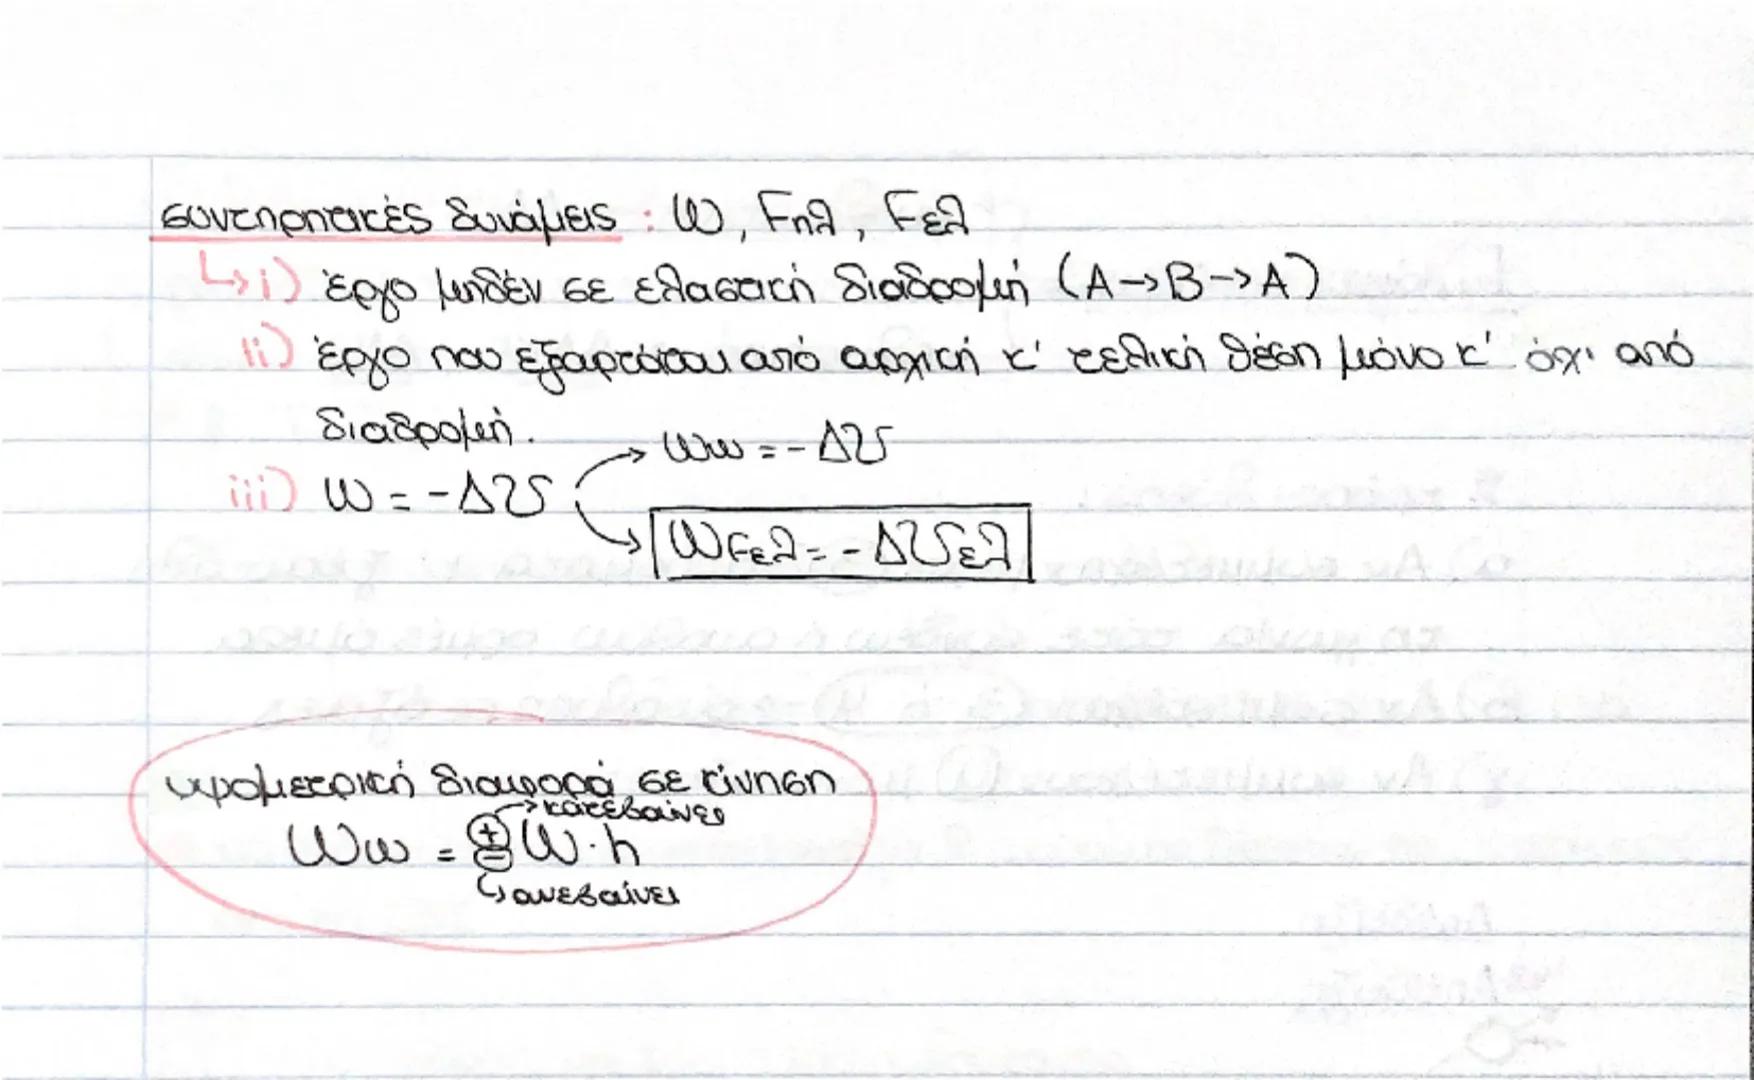 συντηρητικές δυνάμεις : W, Fηλ, Fελ
↳ i) έργο μηδέν σε ελαστική διαδρομή (A→B→A)
ii) έργο που εξαρτάται από αρχική κ' τελική θέση μόνο κ' όχι από
διαδρομή.
→ Ww = - ΔU
iii) W = - ΔU
→ WFελ = - ΔUελ
υψομετρική διαφορά σε κίνηση
→ κατεβαίνει
Ww = ± W·h
↳ ανεβαίνει